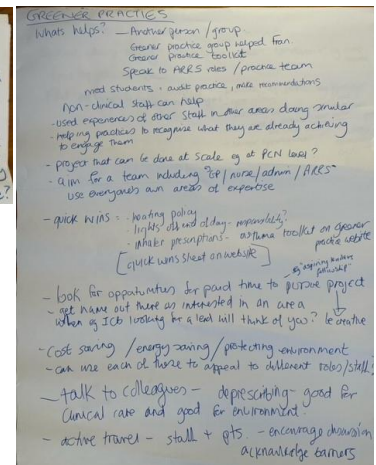 GREENER PRACTIES
Whats helps? — Another person/group
Greener practice group helped Fran.
Greener practice toolkit
Speak to ARRS roles / practice team
med students - audit practice, make recommendations
Non-clinical staff can help
- used experiences of other staff in other areas doing similar
- helping practices to recognise what they are already achieving
to engage them
- project that can be done at scale eg at PCN level?
- aim for a team including ?GP/nurse/admin/ARRS
use everyone's own areas of expertise
- quick wins = . heating policy
. lights off end of day - responsibility?
. inhaler prescriptions - asthma toolkit on greener
practice website
[quick wins sheet on website]
eg "aspiring leaders
fellowship"
- look for oppotunities for paid time to pursue project
- get name out there as interested in an area
when eg ICB looking for a lead will think of you?
be creative
- Cost saving / energy saving / protecting environment
- can use each of these to appeal to different roles/staff?
- talk to colleagues - deprescribing - good for
clinical care and good for environment.
- active travel - staff + pts. - encourage discussion
acknowledge barriers
?